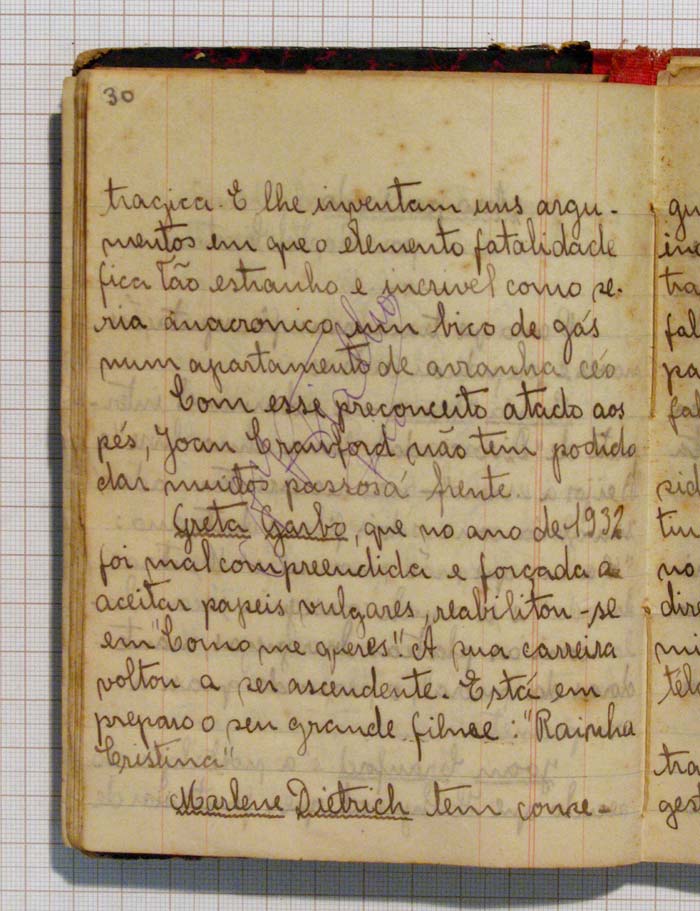 30
tragica. E lhe inventam uns argu-
mentos em que o elemento fatalidade
fica tão estranho e incrivel como se-
ria anacronico um bico de gás
num apartamento de arranha céo
Com esse preconceito atado aos
pés, Joan Crawford não tem podido
dar muitos passos á frente.
Greta Garbo, que no ano de 1932
foi mal compreendida e forçada a
aceitar papeis vulgares, reabilitou-se
em "Como me queres". A sua carreira
voltou a ser ascendente. Está em
preparo o seu grande filme: "Rainha
Cristina"
Marlene Dietrich tem conse-
gu
inc
tra
fal
pa
fal
sid
tur
no
dire
mi
tél
tra
gest